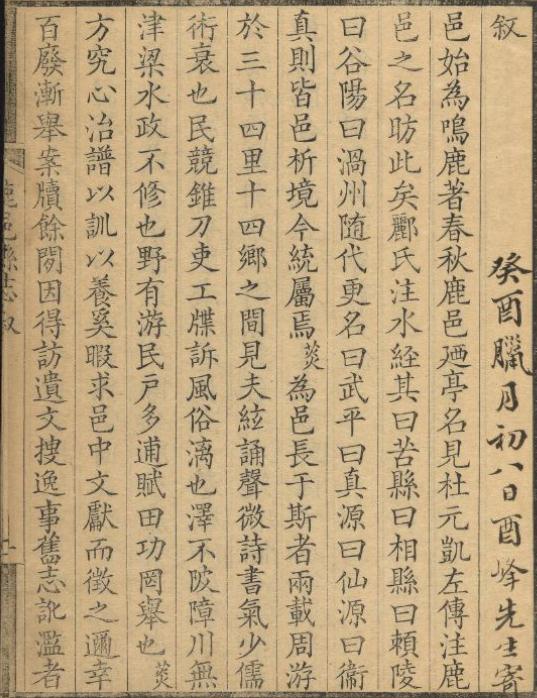 癸酉臘月初八日酉峰先生寄
叙
邑始為鳴鹿著春秋鹿邑廼亭名見杜元凱左傳注鹿
邑之名昉此矣酈氏注水經其曰苦縣曰相縣曰賴陵
曰谷陽曰渦州随代更名曰武平曰真源曰仙源曰衞
真則皆邑析境今統屬焉菼為邑長于斯者兩載周游
於三十四里十四鄉之間見夫絃誦聲微詩書氣少儒
術衰也民競錐刀吏工牒訴風俗漓也澤不陂障川無
津梁水政不修也野有游民戶多逋賦田功罔舉也菼
方究心治譜以訓以養奚暇求邑中文獻而徵之邇幸
百廢漸舉案牘餘閒因得訪遺文搜逸事舊志訛濫者
鹿邑縣志 叙 一